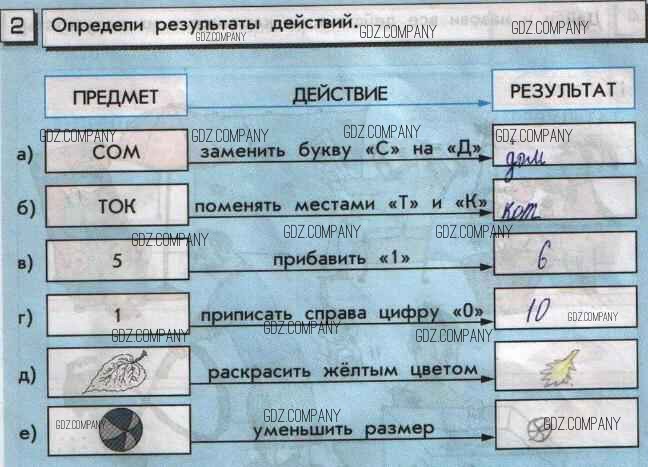 2 Определи результаты действий.
GDZ.COMPANY GDZ.COMPANY GDZ.COMPANY
ПРЕДМЕТ ДЕЙСТВИЕ РЕЗУЛЬТАТ
GDZ.COMPANY GDZ.COMPANY GDZ.COMPANY GDZ.COMPANY
а) СОМ заменить букву «С» на «Д» дом
б) ТОК поменять местами «Т» и «К» кот
GDZ.COMPANY GDZ.COMPANY GDZ.COMPANY
в) 5 прибавить «1» 6
г) 1 приписать справа цифру «0» 10 GDZ.COMPANY
GDZ.COMPANY GDZ.COMPANY GDZ.COMPANY
д) раскрасить жёлтым цветом
GDZ.COMPANY GDZ.COMPANY GDZ.COMPANY
е) уменьшить размер